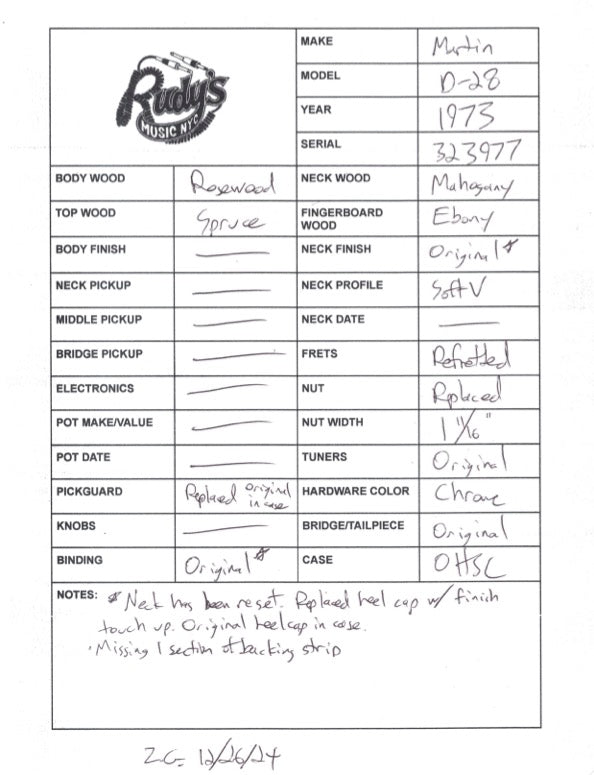 Rudy's
MUSIC NYC
MAKE Martin
MODEL D-28
YEAR 1973
SERIAL 323977
BODY WOOD Rosewood NECK WOOD Mahogany
TOP WOOD Spruce FINGERBOARD WOOD Ebony
BODY FINISH — NECK FINISH Original*
NECK PICKUP — NECK PROFILE Soft V
MIDDLE PICKUP — NECK DATE —
BRIDGE PICKUP — FRETS Refretted
ELECTRONICS — NUT Replaced
POT MAKE/VALUE — NUT WIDTH 1 11/16"
POT DATE — TUNERS Original
PICKGUARD Replaced Original in case HARDWARE COLOR Chrome
KNOBS — BRIDGE/TAILPIECE Original
BINDING Original* CASE OHSC
NOTES: * Neck has been reset. Replaced heel cap w/ finish
touch up. Original heel cap in case.
· Missing 1 section of backing strip
ZG- 12/26/24